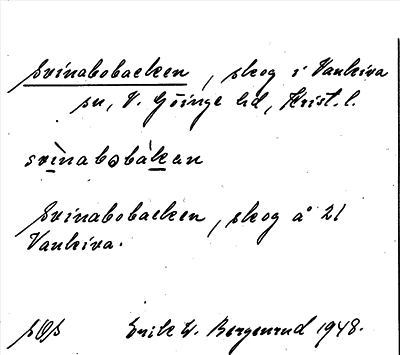 Svinabobacken, skog i Vankiva
sn, V. Göinge hd, Krist. l.
svìnabobàkan
Svinabobacken, skog å 21
Vankiva.
sOs Erik W. Bergenrud 1948.